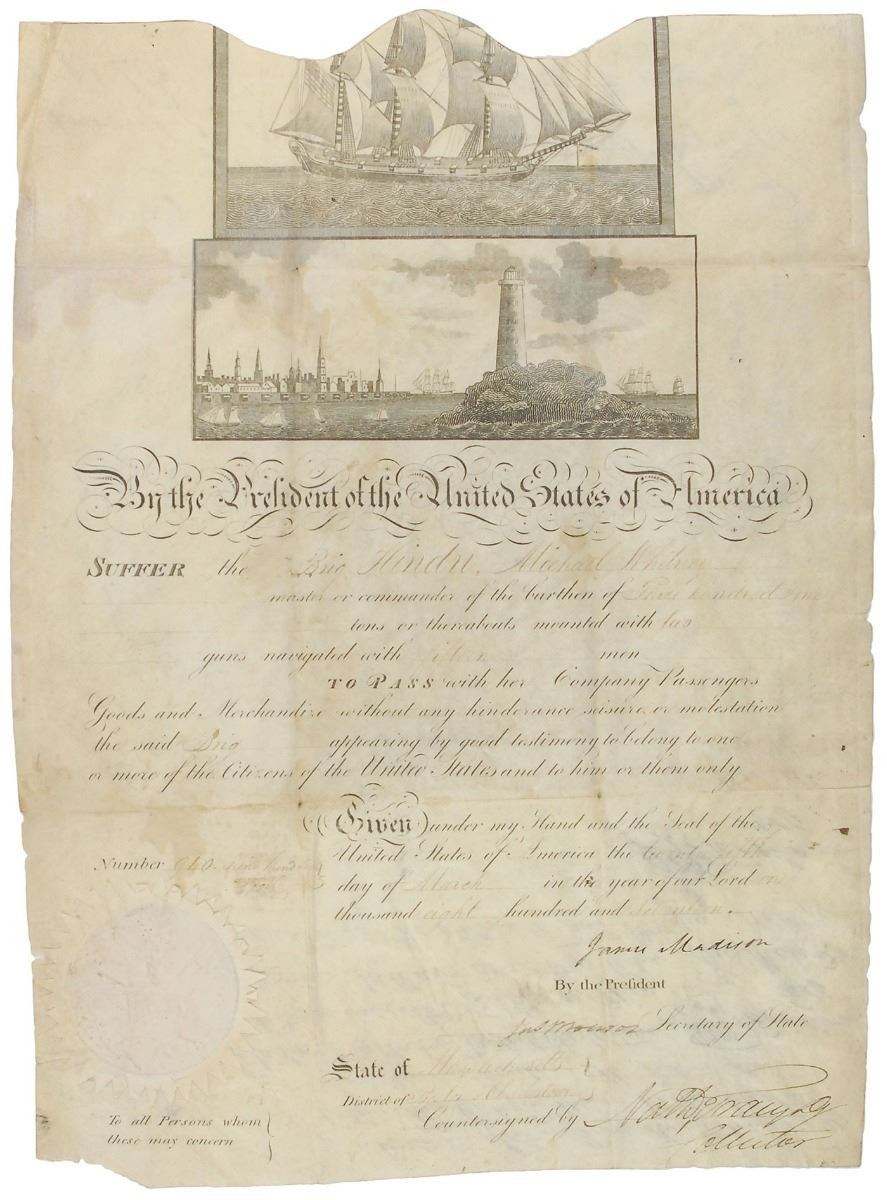 By the President of the United States of America
SUFFER the Brig Hindu, Michael Whitney
master or commander of the burthen of Three hundred one
tons or thereabouts mounted with
guns navigated with men
TO PASS with her Company Passengers
Goods and Merchandize without any hinderance seisure or molestation
the said Brig appearing by good testimony to belong to one
or more of the Citizens of the United States and to him or them only
Given under my Hand and the Seal of the
United States of America the twenty fifth
day of March in the year of our Lord one
thousand eight hundred and
Number 940
James Madison
By the President
Jas Monroe Secretary of State
State of Massachusetts
District of
Countersigned by
Collector
To all Persons whom
these may concern